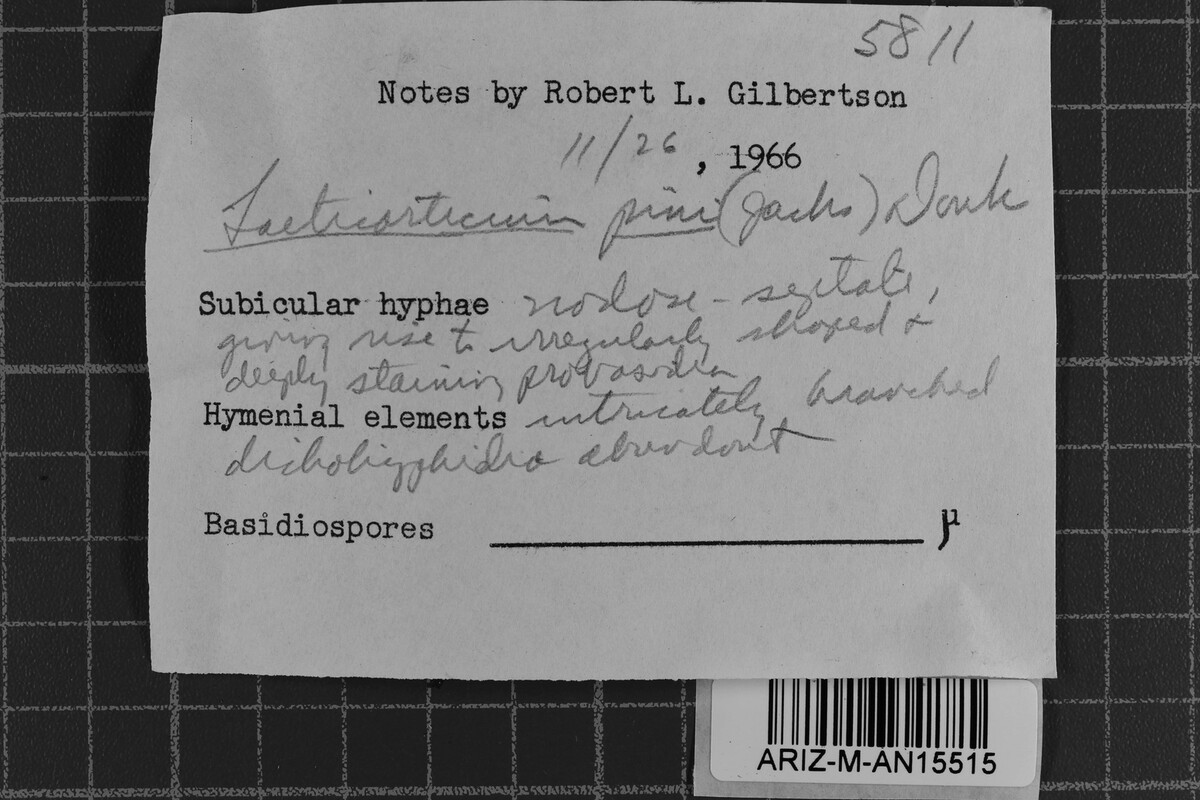 5811
Notes by Robert L. Gilbertson
11/26, 1966
Laeticorticium pini (Jacks) Donk
Subicular hyphae nodose-septate,
giving rise to irregularly shaped &
deeply staining probasidia
Hymenial elements intricately branched
dichohyphidia abundant
Basidiospores μ
ARIZ-M-AN15515